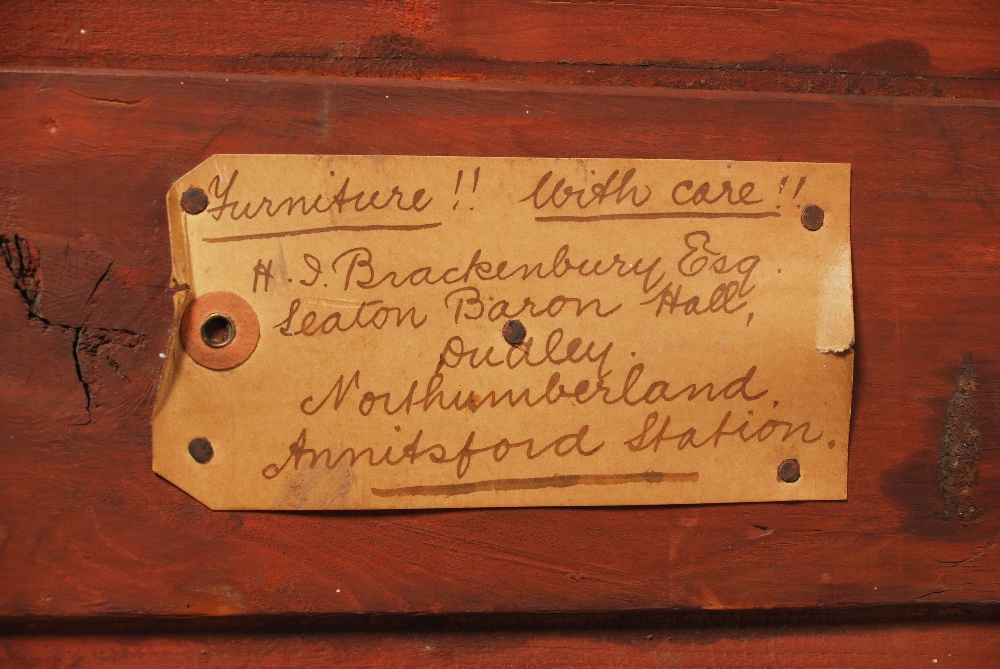 Furniture!! With care!!
H. I. Brackenbury Esq.
Seaton Baron Hall,
Dudley.
Northumberland.
Annitsford Station.